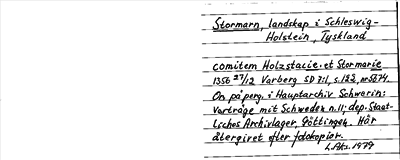 Stormarn, landskap i Schleswig-
Holstein, Tyskland
comitem Holzstacie. et Stormarie
1356 27/12 Varberg SD 7:1, s.123, nr 5674.
On på perg. i Hauptarchiv Schwerin:
Verträge mit Schweden n.11; dep. Staat-
liches Archivlager, Göttingen. Här
återgivet efter fotokopior.
1979